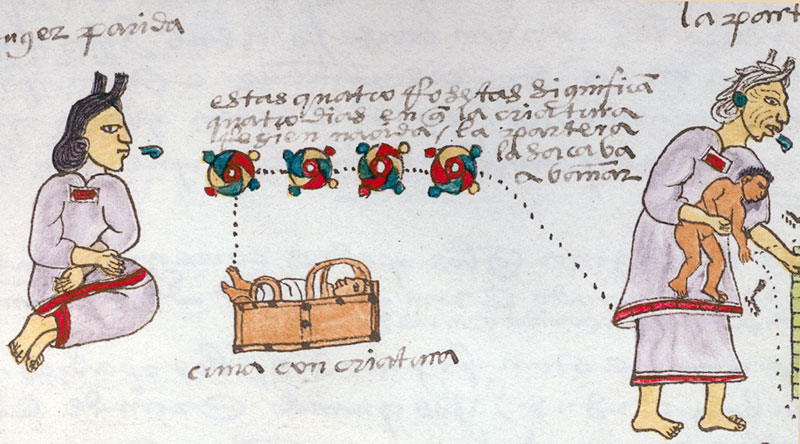 uger parida
la part
estas quatro Rosetas significā
quatro dias en q̄ la criatura
rregien naçida / la partera
la sacava
a bañar
cuna con criatura